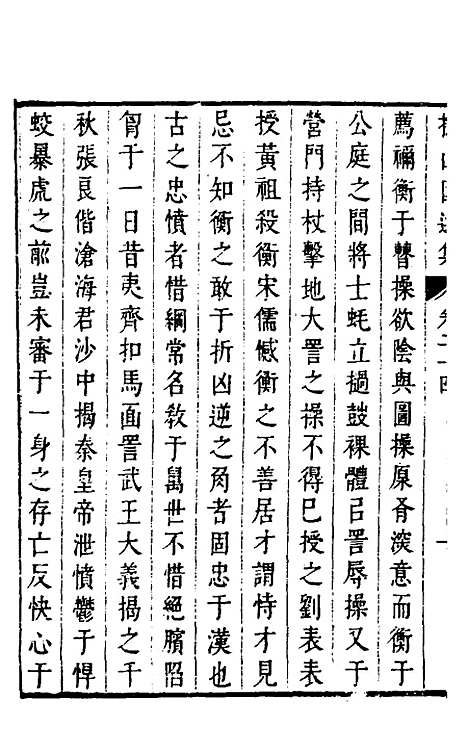 薦禰衡于瞽操欲陰與圖操原胥深意而衡于
公庭之間將士蚝立撾鼓裸體㠯詈辱操又于
營門持杖擊地大詈之操不得巳授之劉表表
授黃祖殺衡宋儒憾衡之不善居才謂恃才見
忌不知衡之敢于折凶逆之角者固忠于漢也
古之忠憤者惜綱常名敎于萬世不惜絕臏䧟
胷于一日昔夷齊扣馬面詈武王大義揭之千
秋張良偕滄海君沙中揭秦皇帝泄憤鬱于悍
蛟暴虎之前豈未審于一身之存亡反快心于